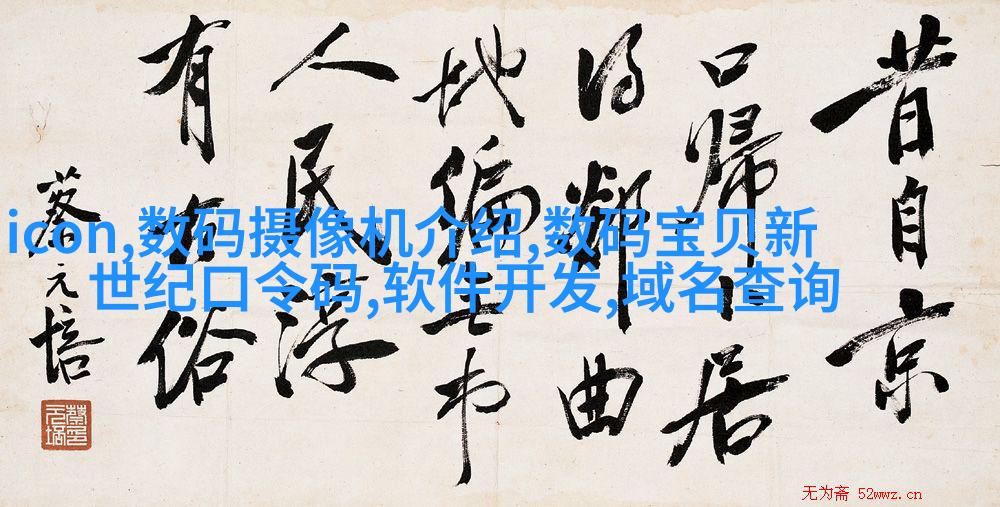 昔自京
口歸卜居
得鄰曲
地偏無市
人民淳
有古俗
蔡元培
icon,数码摄像机介绍,数码宝贝新
世纪口令码,软件开发,域名查询
无为斋 52wwz.cn